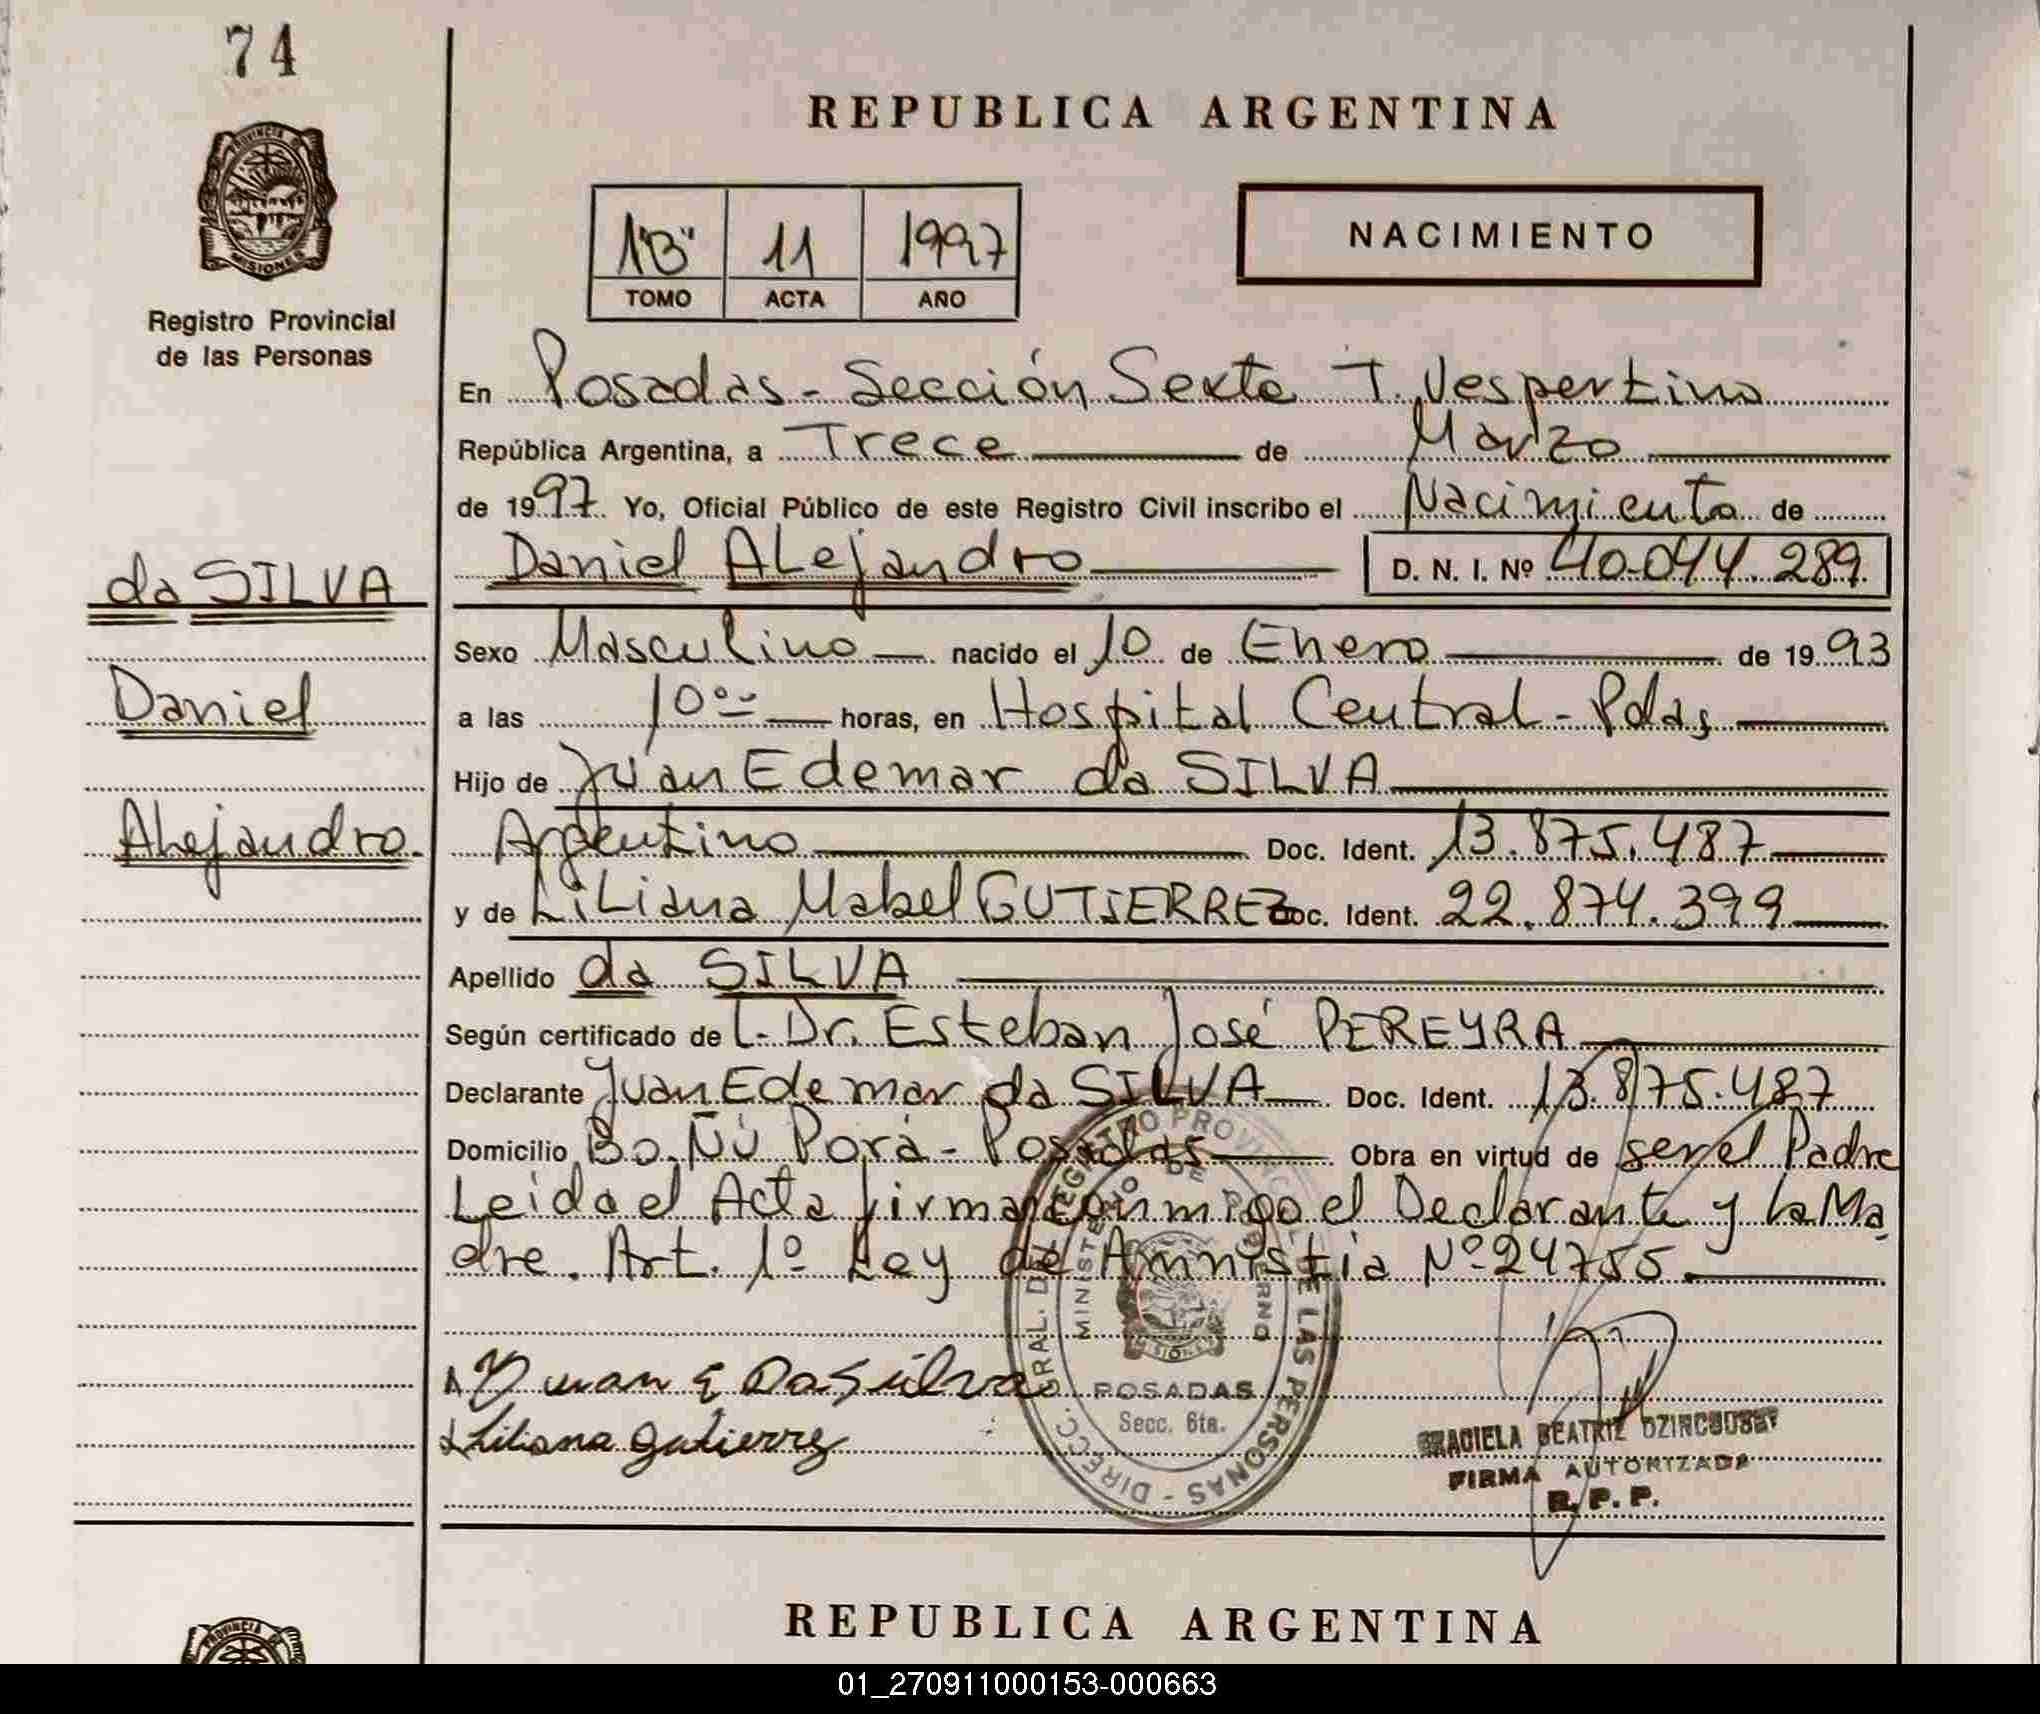 74
PROVINCIA DE
MISIONES
Registro Provincial
de las Personas
REPUBLICA ARGENTINA
1"B" 11 1997
TOMO ACTA AÑO
NACIMIENTO
En Posadas - Sección Sexta T. Vespertino
República Argentina, a Trece de Marzo
de 1997. Yo, Oficial Público de este Registro Civil inscribo el Nacimiento de
Daniel Alejandro D. N. I. Nº 40.044.289
da SILVA
Daniel
Alejandro.
Sexo Masculino nacido el 10 de Enero de 1993
a las 10⁰⁰ horas, en Hospital Central - Pdas
Hijo de Juan Edemar da SILVA
Argentino Doc. Ident. 13.875.487
y de Liliana Mabel GUTIERREZ Doc. Ident. 22.874.399
Apellido da SILVA
Según certificado de L. Dr. Esteban José PEREYRA
Declarante Juan Edemar da SILVA Doc. Ident. 13.875.487
Domicilio Bo. Ñú Porá - Posadas Obra en virtud de ser el Padre
Leida el Acta firman conmigo el Declarante y la Ma
dre. Art. 1º Ley de Amnistia Nº 24755.
Juan E Da Silva
Liliana Gutierrez
DIRECC. GRAL. DEL REGISTRO PROVINCIAL DE LAS PERSONAS
MINISTERIO DE GOBIERNO
MISIONES
POSADAS
Secc. 6ta.
GRACIELA BEATRIZ
FIRMA AUTORIZADA
R. P. P.
REPUBLICA ARGENTINA
PROVINCIA
01_270911000153-000663